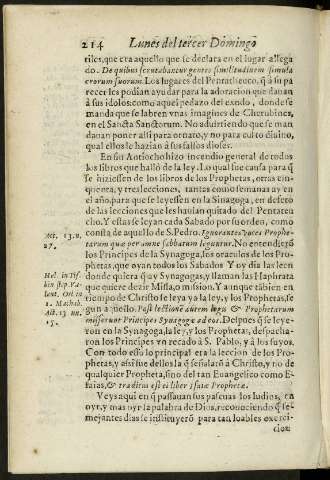 214 Lunes del tercer Domingo
riles, que era aquello que se declara en el lugar allega
do. De quibus scrutabantur gentes similitudinem simula
crorum suorum. Los lugares del Pentatheuco, q̃ a su pa
recer les podian ayudar para la adoracion que dauan
à sus idolos: como aquel pedazo del exodo, donde se
manda que se labren vnas imagines de Cherubines,
en el Sancta Sanctorum. No aduirtiendo que se man
dauan poner alli para ornato, y no para culto diuino,
qual ellos le hazian à sus falsos dioses.
En sin Antiocho hizo incendio general de todos
los libros que hallò de la ley. Lo qual fue causa para q̃
se hiziessen de los libros de los Prophetas, otras cin
quenta, y tres lecciones, tantas como semanas ay en
el año, para que se leyessen en la Sinagoga, en defecto
de las lecciones que les hauian quitado del Pentatea
cho. Y estas se leyan cada Sabado por su orden, como
consta de aquello de S. Pedro. Ignorantes voces Prophe-
tarum quæ per omne sabbatum leguntur. No entendierō
los Principes de la Synagoga, los oraculos de los Pro-
phetas, que oyan todos los Sabados Y oy dia las leen
donde quiera q̃ ay Synagogas, y llaman las Haphtara
que quiere dezir Missa, o mision. Y aunque tãbien en
tiempo de Christo se leya ya la ley, y los Prophetas, se
gun aquello. Post lectionē autem legis & Prophetarum
misserunt Principes Synagogæ ad eos. Despues q̃ se leye-
ron en la Synagoga, la ley, y los Prophetas, despacha-
ron los Principes vn recado à S. Pablo, y à los suyos.
Con todo esso lo principal era la leccion de los Pro-
phetas, y assi fue dellos la q̃ señalarõ à Christo, y no de
qualquier Propheta, sino del tan Euangelico como E-
saias, & traditus est ei liber Isaiæ Prophetæ.
Veys aqui en q̃ passauan sus pascuas los Iudios, en
oyr, y mas oyr la palabra de Dios, reconociendo q̃ se-
mejantes dias se instituyerõ para tan loables exerci-
cios
Act. 13. n.
27.
Hel. in Tis
bin
1. Machab.
Act. 13 nu.
15.